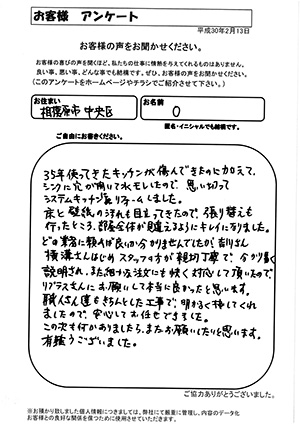 お客様 アンケート
平成30年2月13日
お客様の声をお聞かせください。
お客様の喜びの声を聞くほど、私たちの仕事に情熱を与えてくれるものはありません。
良い事、悪い事、どんな事でも結構です。ぜひ、お客様の声をお聞かせください。
(このアンケートをホームページやチラシでご紹介させて下さい。)
お住まい
相模原市 中央区
お名前
O
匿名・イニシャルでも結構です。
ご自由にお書きください。
35年使ってきたキッチンが傷んできたのに加えて、
シンクに穴が開いて水モレしたので、思い切って
システムキッチンにリフォームしました。
床と壁紙の汚れも目立ってきたので、張り替えも
行ったところ、部屋全体が見違えるようにキレイになりました。
どの業者に頼めば良いか分かりませんでしたが、
横溝さんはじめスタッフの方が親切丁寧で、分かり易く
説明され、また細かな注文にも快く対応して頂いたので、
リプラスさんにお願いして本当に良かったと思います。
職人さん達もきちんとした工事で、明るく接してくれ
ましたので、安心してお任せできました。
この次も何かありましたら、またお願いしたいと思います。
有難うございました。
ご協力ありがとうございました。
※お預かり致しました個人情報につきましては、弊社にて厳重に管理し、内容のデータ化
お客様との良好な関係を保つために使用させていただきます。